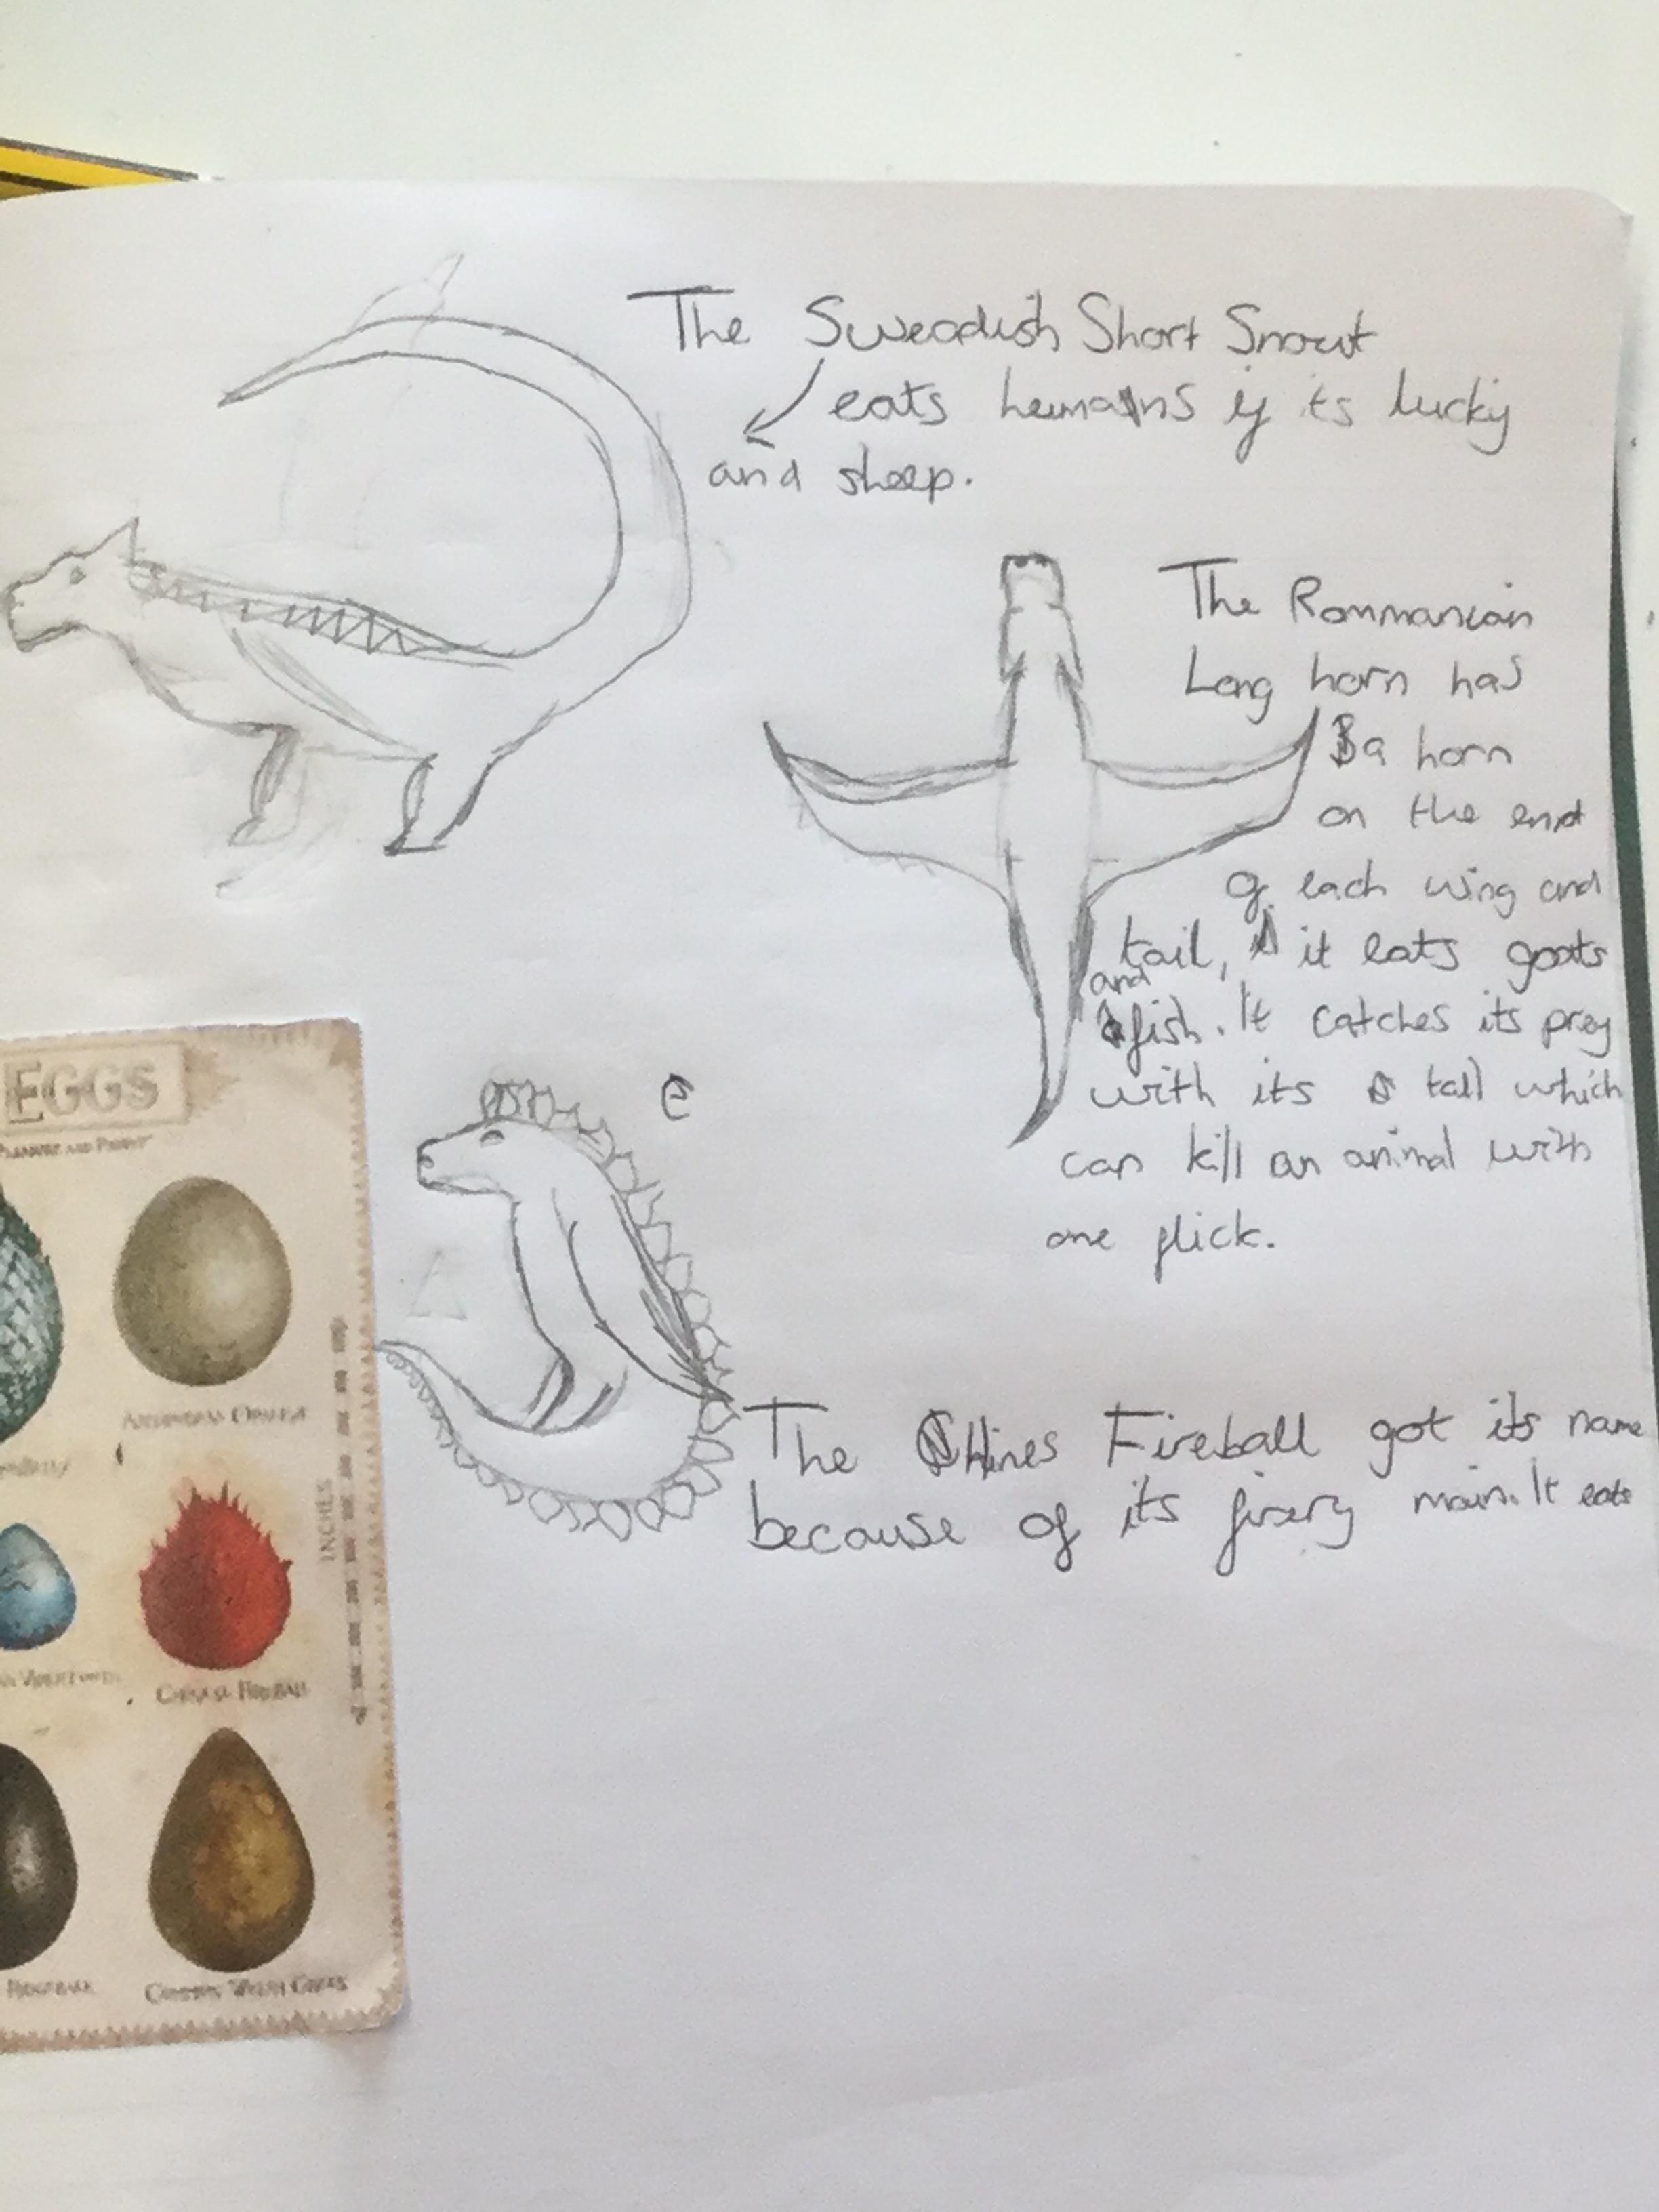 The Sweadish Short Snout
eats humans if its lucky
and sheep.
The Rommanian
Long horn has
a horn
on the end
of each wing and
tail, it eats goats
and
fish. It catches its prey
with its tail which
can kill an animal with
one flick.
e
The Chines Fireball got its name
because of its firery main. It eats
EGGS
INCHES
CHINESE FIREBALL
RIDGEBACK
COMMON WELSH GREEN